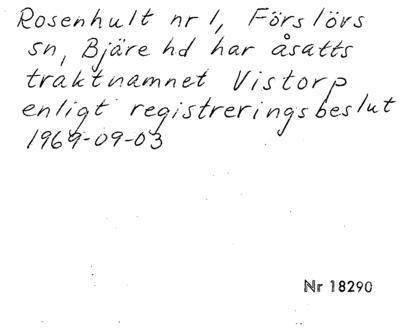 Rosenhult nr 1, Förslövs
sn, Bjäre hd har åsatts
traktnamnet Vistorp
enligt registreringsbeslut
1969-09-03
Nr 18290